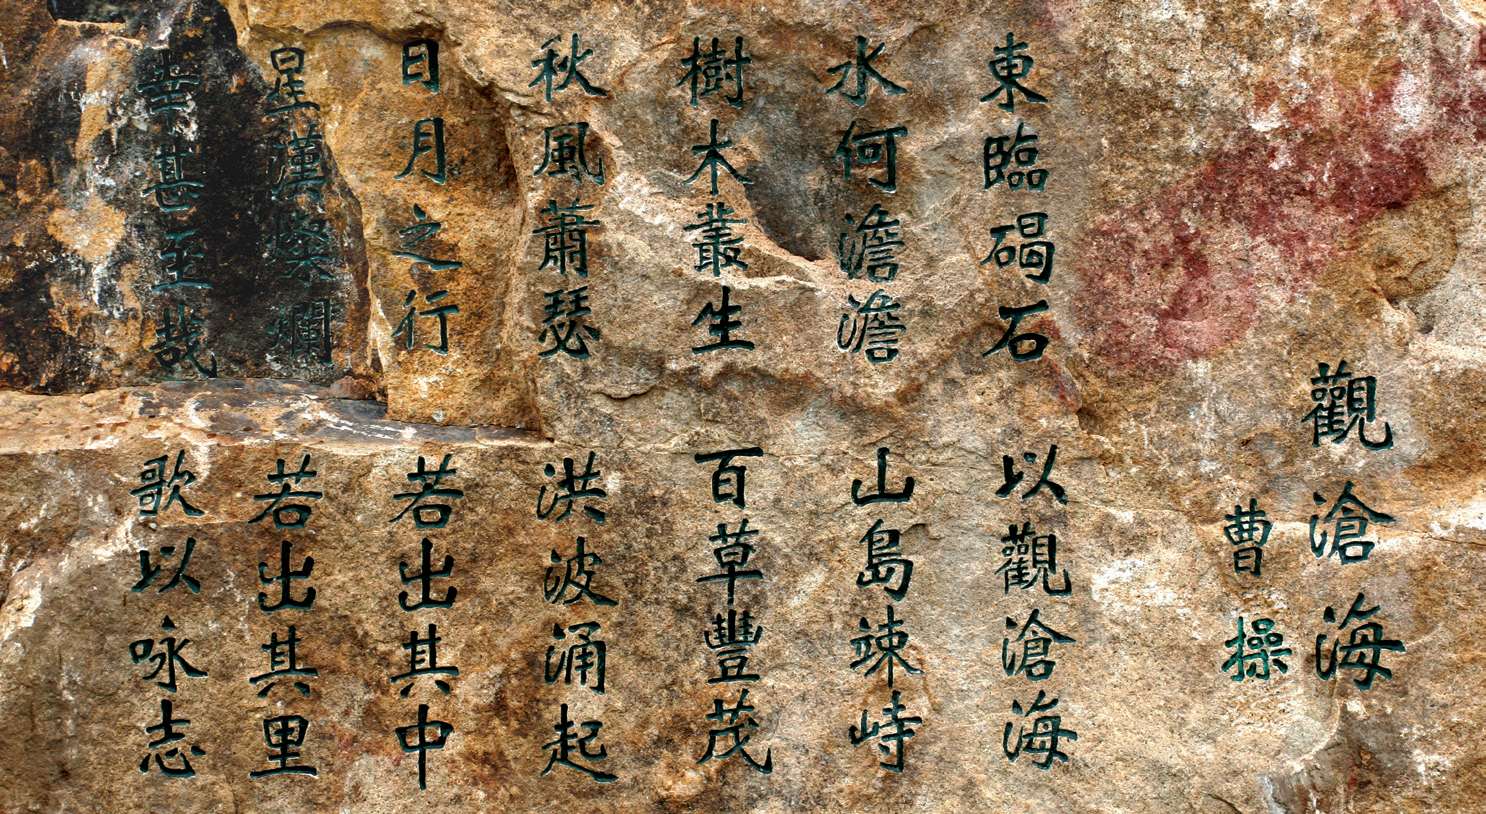 觀滄海
曹操
東臨碣石
以觀滄海
水何澹澹
山島竦峙
樹木叢生
百草豐茂
秋風蕭瑟
洪波涌起
日月之行
若出其中
星漢燦爛
若出其里
幸甚至哉
歌以咏志